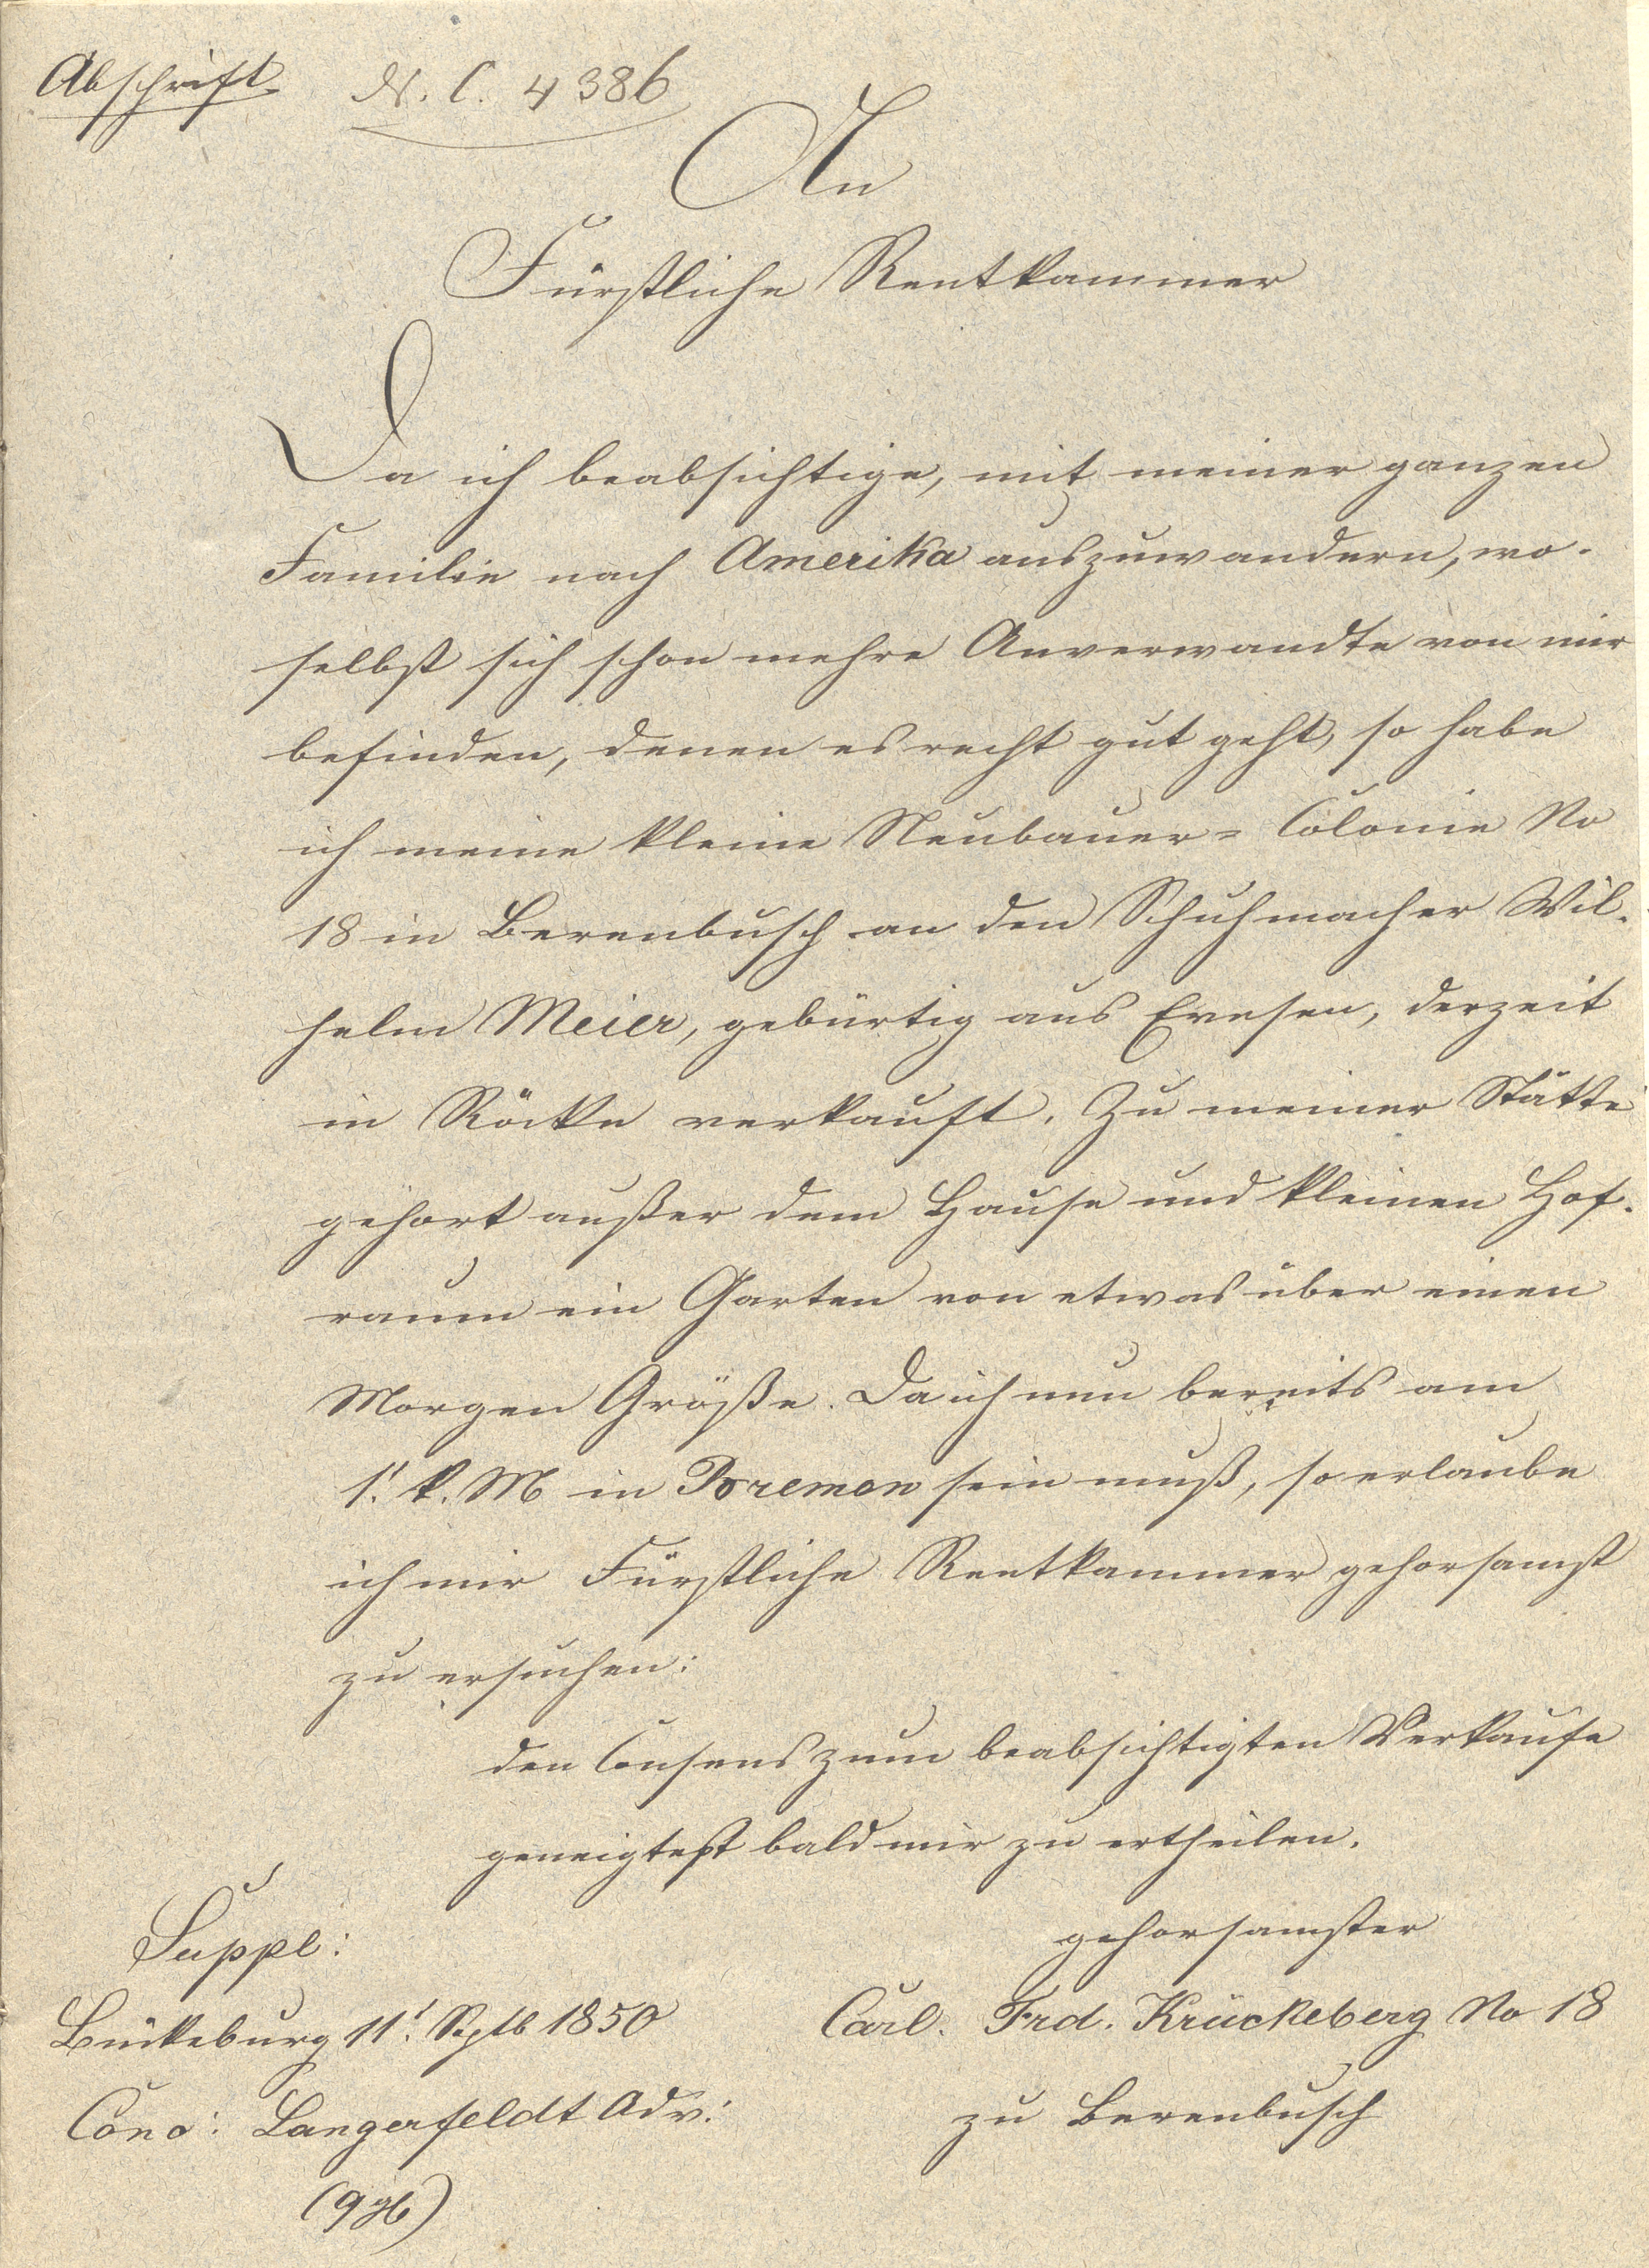 Abschrift N. C. 4386
An
Fürstliche Rentkammer
Da ich beabsichtige, mit meiner ganzen
Familie nach Amerika auszuwandern, wo-
selbst sich schon mehre Anverwandte von mir
befinden, denen es recht gut geht, so habe
ich meine kleine Neubauer= Colonie No
18 in Berenbusch an den Schuhmacher Wil-
helm Meier, gebürtig aus Evesen, derzeit
in Röcke verkauft. Zu meiner Stätte
gehort außer dem Hause und kleinen Hof-
raum ein Garten von etwas über einen
Morgen Größe. Da ich nun bereits am
1t. k. M in Bremen sein muß, so erlaube
ich mir Fürstliche Rentkammer gehorsamst
zu ersuchen:
den Consens zum beabsichtigten Verkaufe
geneigtest bald mir zu ertheilen.
Suppl:
gehorsamster
Bückeburg 11t. Septb 1850
Carl. Frd. Krückeberg No 18
Conc: Langerfeldt Adv:
zu Berenbusch